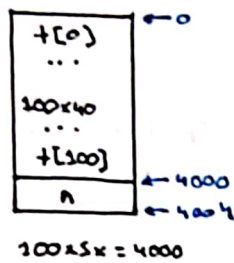 ← 0
t[0]
...
100x40
...
t[100]
← 4000
n
← 4004
100x5x = 4000